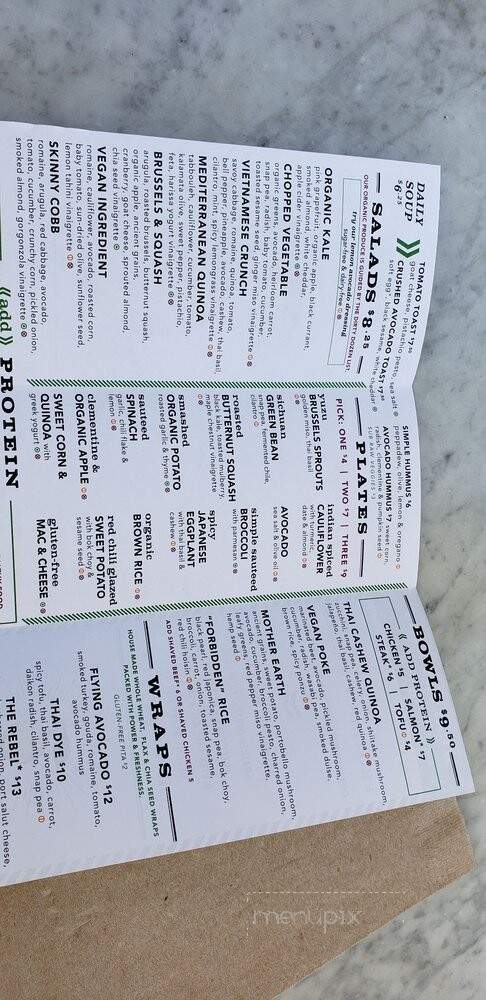 DAILY
SOUP
$6.25
TOMATO TOAST $7.95
goat cheese, pistachio pesto, sea salt
CRUSHED AVOCADO TOAST $7.95
soft egg, black sesame, white cheddar
SALADS $8.25
OUR ORGANIC PRODUCE IS GUIDED BY THE DIRTY DOZEN LIST
try our lemon avocado dressing
sugarfree & dairyfree
ORGANIC KALE
pink grapefruit, organic apple, black currant,
smoked almond, white cheddar,
apple cider vinaigrette
CHOPPED VEGETABLE
organic greens, avocado, heirloom carrot,
snap pea, radish, baby tomato, cucumber,
toasted sesame seed, ginger miso vinaigrette
VIETNAMESE CRUNCH
savoy cabbage, romaine, quinoa, tomato,
bell pepper, pineapple, avocado, cashew, thai basil,
cilantro, mint, spicy lemongrass vinaigrette
MEDITERRANEAN QUINOA
tabbouleh, cauliflower, cucumber, tomato,
kalamata olive, sweet pepper, pistachio,
feta, harissa yogurt vinaigrette
BRUSSELS & SQUASH
arugula, roasted brussels, butternut squash,
organic apple, ancient grains,
cranberry, goat cheese, sprouted almond,
chia seed vinaigrette
VEGAN INGREDIENT
romaine, cauliflower, avocado, roasted corn,
baby tomato, sun-dried olive, sunflower seed,
lemon tahini vinaigrette
SKINNY COBB
romaine, arugula, red cabbage, avocado,
tomato, cucumber, crunchy corn, pickled onion,
smoked almond, gorgonzola vinaigrette
((add)) PROTEIN
SIMPLE HUMMUS $6
peppadew, olive, lemon & oregano
AVOCADO HUMMUS $7 sweet corn,
radish, clementine & pumpkin seed
SUB RAW VEGGIES $3
PLATES
PICK: ONE $4 | TWO $7 | THREE $9
yuzu
BRUSSELS SPROUTS
golden miso, thai basil
sichuan
GREEN BEAN
snap pea, fermented chile,
cilantro
roasted
BUTTERNUT SQUASH
black kale, toasted mulberry,
maple chestnut vinaigrette
smashed
ORGANIC POTATO
roasted garlic & thyme
sauteed
SPINACH
garlic, chili flake &
lemon
clementine &
ORGANIC APPLE
SWEET CORN &
QUINOA with
greek yogurt
indian spiced
CAULIFLOWER
with turmeric,
date & almond
AVOCADO
sea salt & olive oil
simple sauteed
BROCCOLI
with parmesan
spicy
JAPANESE
EGGPLANT
with thai basil &
cashew
organic
BROWN RICE
red chili glazed
SWEET POTATO
with bok choy &
sesame seed
gluten-free
MAC & CHEESE
BOWLS $9.50
(( ADD PROTEIN ))
CHICKEN $5 | SALMON* $7
STEAK* $6 | TOFU $4
THAI CASHEW QUINOA
zucchini, snap pea, celery, onion, shiitake mushroom,
jalapeño, thai basil, cashew, red quinoa
VEGAN POKE
marinated beet, avocado, pickled mushroom,
cucumber, radish, wasabi pea, smoked dulse,
brown rice, spicy ponzu
MOTHER EARTH
ancient grains, sweet potato, portobello mushroom,
avocado, cucumber, broccoli pesto, charred onion,
leafy greens, red pepper miso vinaigrette,
hemp seed
"FORBIDDEN" RICE
black pearl, red japonica, snap pea, bok choy,
broccoli, carrot, onion, toasted sesame,
red chili hoisin
ADD SHAVED BEEF* 6 OR SHAVED CHICKEN 5
WRAPS
HOUSE MADE WHOLE WHEAT, FLAX & CHIA SEED WRAPS
PACKED WITH POWER & FRESHNESS.
GLUTEN-FREE PITA $2
FLYING AVOCADO $12
smoked turkey, gouda, romaine, tomato,
avocado hummus
THAI DYE $10
spicy tofu, thai basil, avocado, carrot,
daikon radish, cilantro, snap pea
THE REBEL* $13
port salut cheese,
menupix